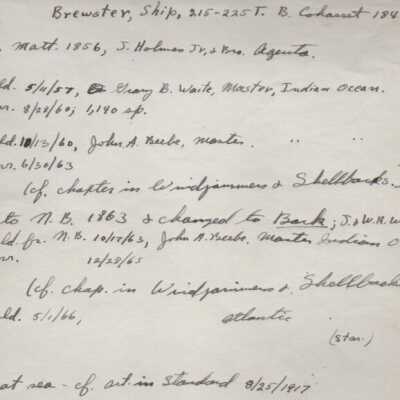 Brewster, Ship, 215-225 T. B. Cohasset 184
Matt. 1856, J. Holmes Jr, & Bro. Agents.
ld. 5/4/57, Geary B. Waite, Master, Indian Ocean.
r. 8/28/60; 1,190 sp.
ld. 10/13/60, John A. Beebe, Master. " "
r. 6/30/63
(cf. chapter in Windjammers & Shellbacks.
to N.B. 1863 & changed to Bark; J. & W.R. W
ld fr. N.B. 10/17/63, John A. Beebe, Master Indian O
r. 12/28/65
(cf. chap. in Windjammers & Shellback
ld. 5/1/66, Atlantic
(Star.)
at sea - cf. art. in Standard 8/25/1917